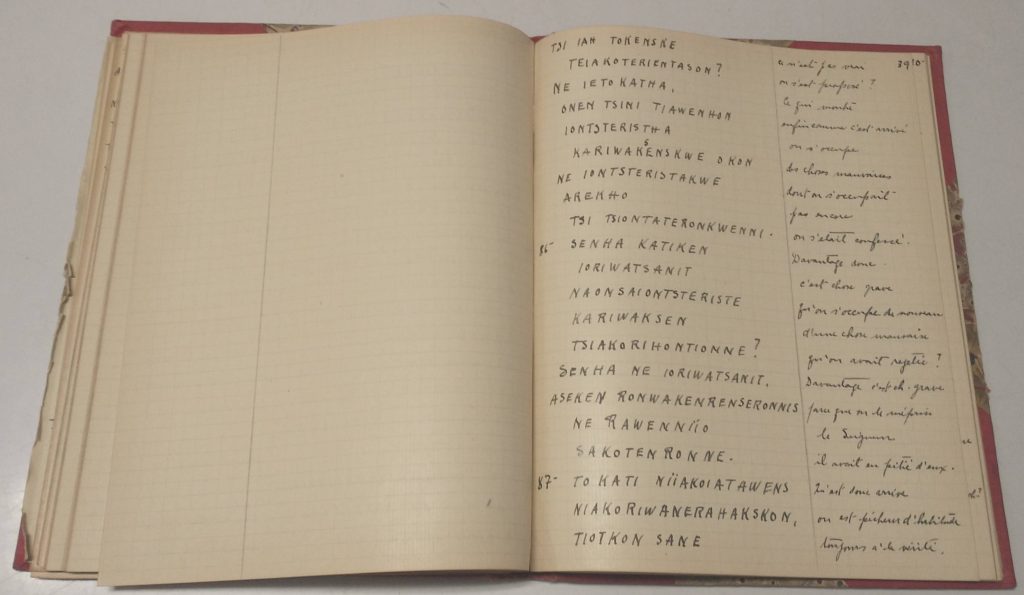 TSI IAH TOKENSKE
TEIAKOTERIENTASON?
NE IETOKATHA,
ONEN TSINI TIAWENHON
IONTSTERISTHA
KARIWAKSENSKWE OKON
NE IONTSTERISTAKWE
AREKHO
TSI TSIONTATERONKWENNI.
86- SENHA KATIKEN
IORIWATSANIT
NAONSAIONTSTERISTE
KARIWAKSEN
TSIAKORIHONTIONNE?
SENHA NE IORIWATSANIT,
ASEKEN RONWAKENRENSERONNIS
NE RAWENNIIO
SAKOTENRONNE.
87- TO KATI NIIAKOIATAWENS
NIAKORIWANERAHAKSKON,
TIOTKON SANE
a n'est pas vrai
on s'est proposé?
Ce qui montre
enfin comme c'est arrivé
on s'occupe
des choses mauvaises
dont on s'occupait
pas encore
on s'était confessé.
Davantage donc
c'est chose grave
qu'on s'occupe de nouveau
d'une chose mauvaise
qu'on avait rejetée?
Davantage c'est ch. grave
parce que on le méprise
le Seigneur
il avait eu pitié d'eux.
Qu'est donc arrivé
on est pécheur d'habitude
toujours à la vérité.